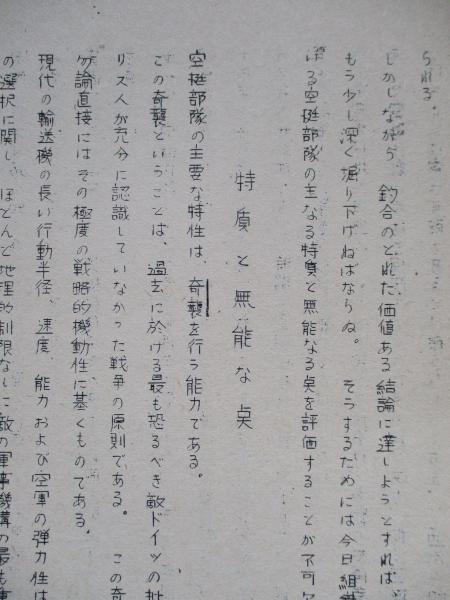 られる。
しかしながら 釣合のとれた価値ある結論に達しようとすれば
もう少し深く掘り下げねばならぬ。 そうするためには今日組織
ける空挺部隊の主なる特質と無能なる点を評価することが不可欠
特質と無能な点
空挺部隊の主要な特性は、奇襲を行う能力である。
この奇襲ということは、過去に於ける最も恐るべき敵ドイツの
リス人が充分に認識していなかった戦争の原則である。 この奇
勿論直接にはその極度の戦略的機動性に基くものである。
現代の輸送機の長い行動半径、速度、能力および空軍の弾力性は
の選択に関し、ほとんど地理的制限なしに敵の軍事機構の最も